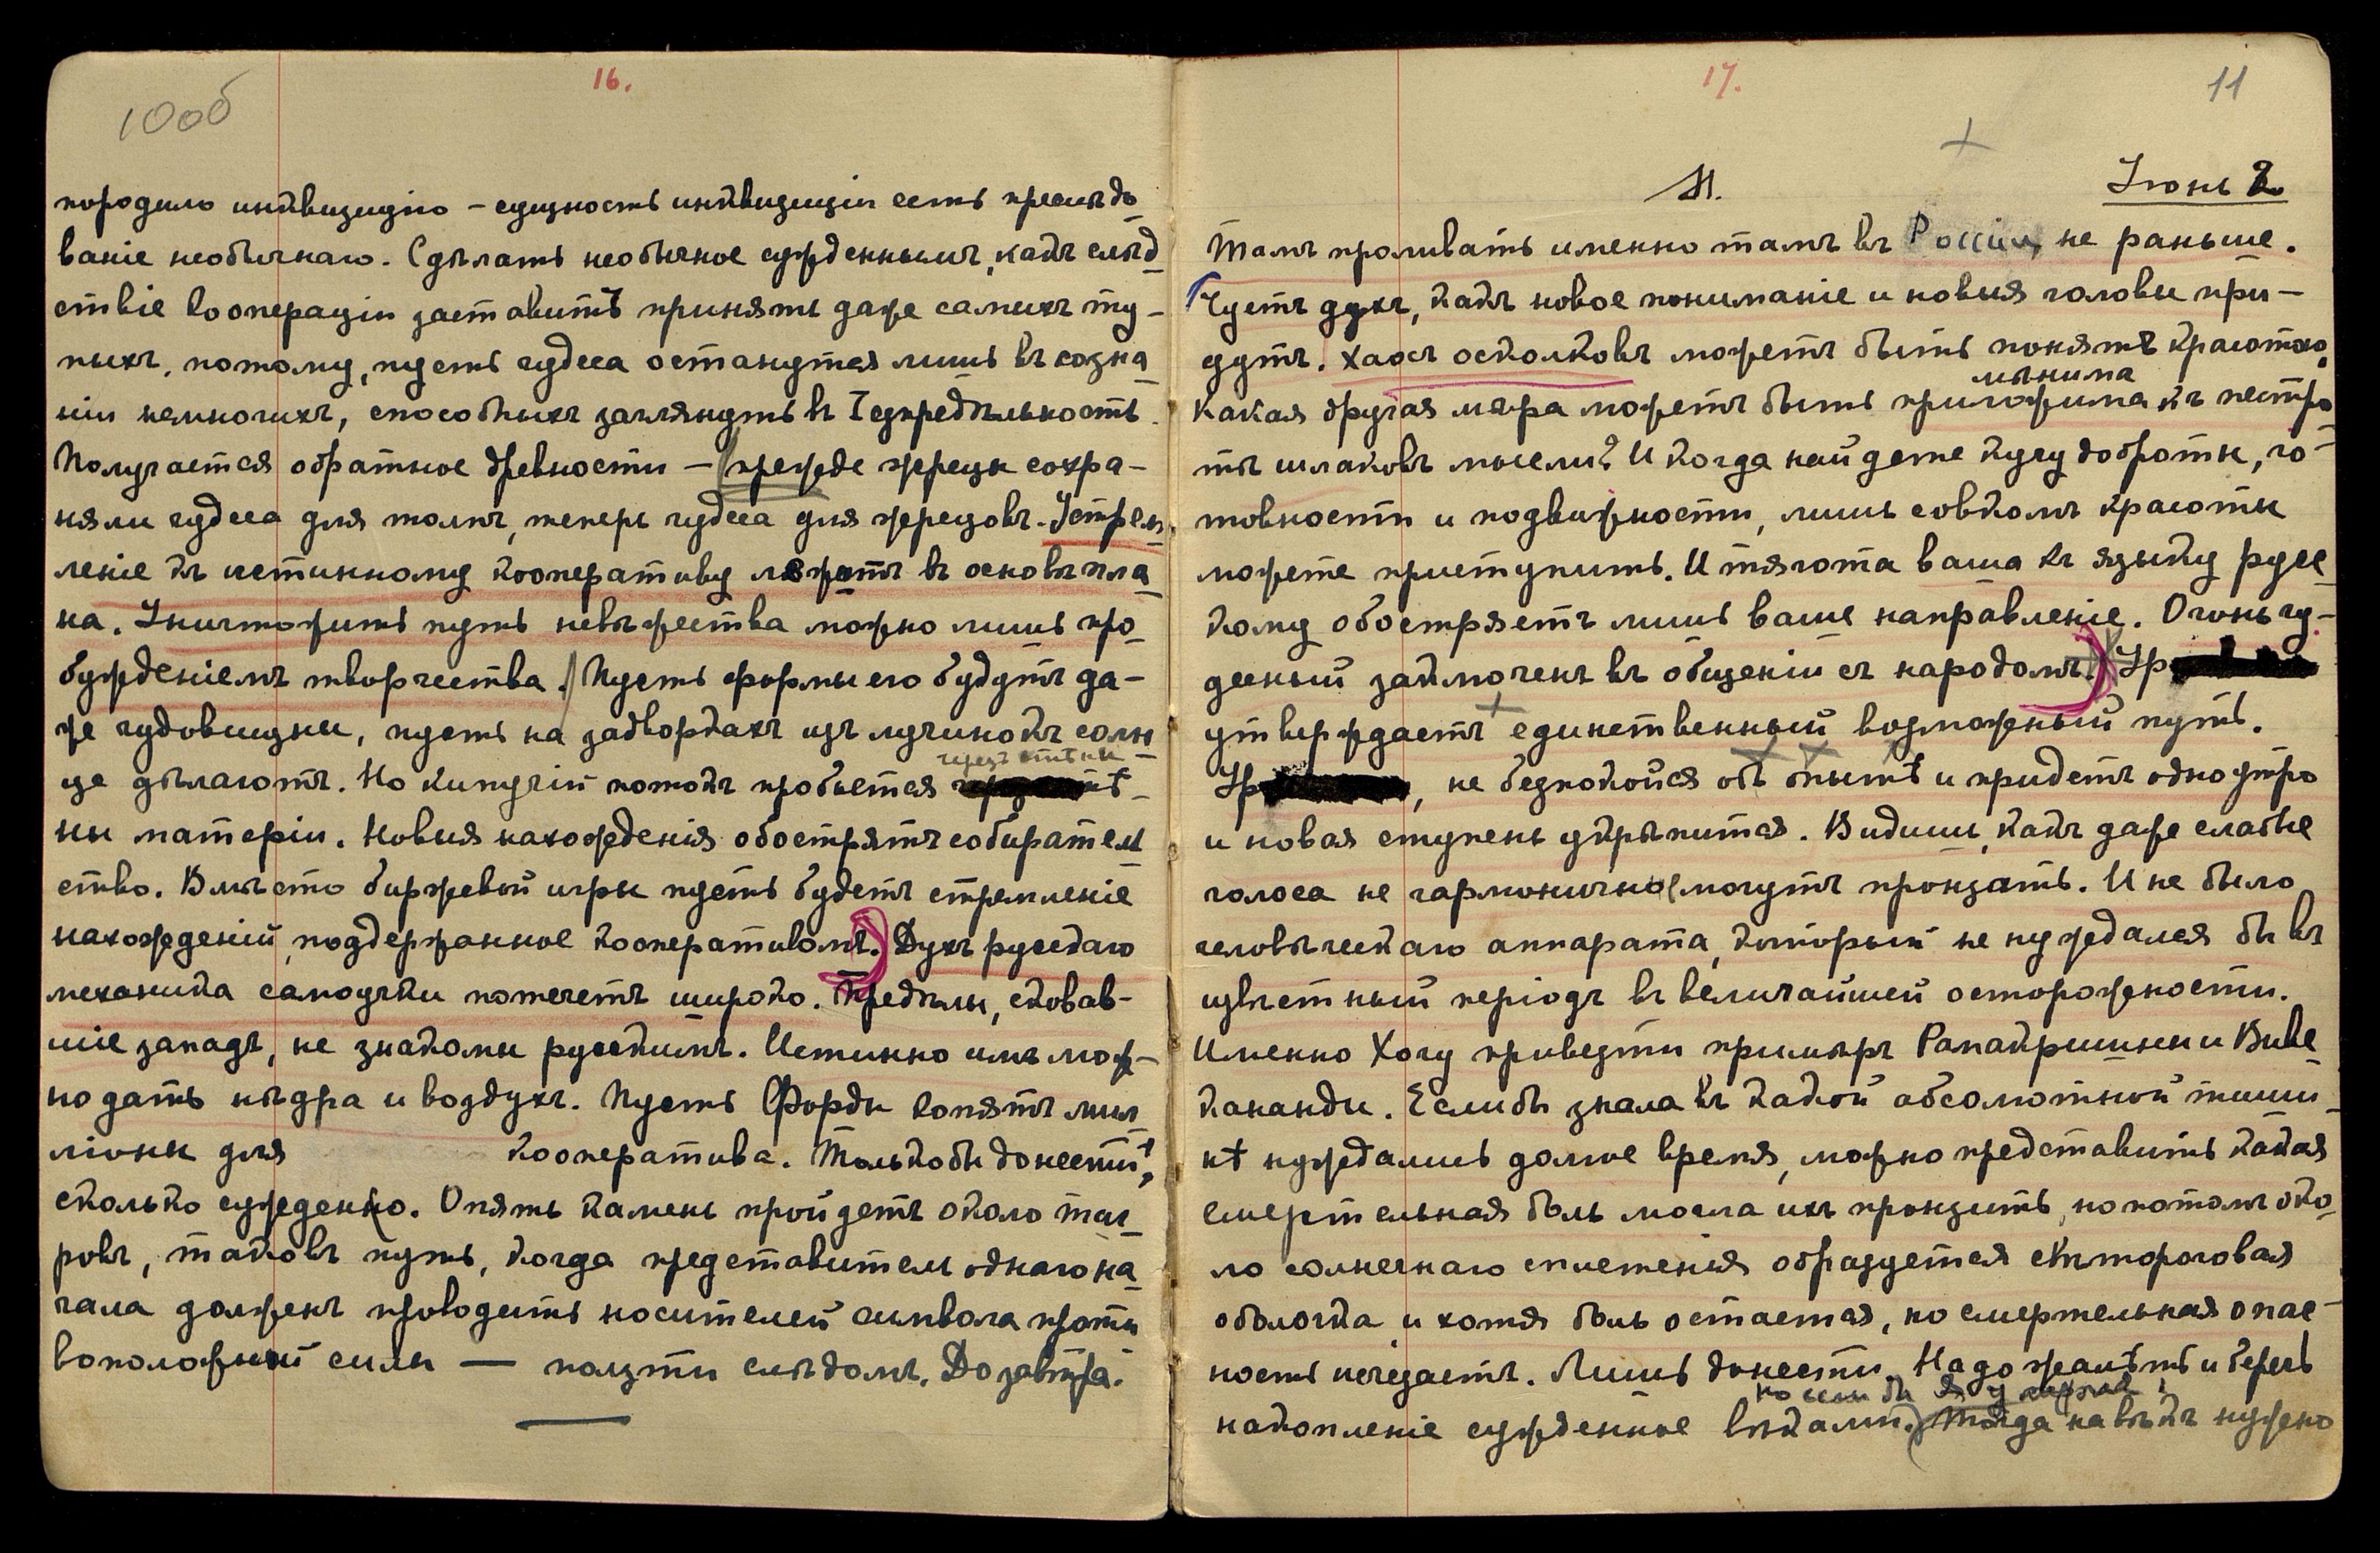 16.
10об
породило инквизицію – сущность инквизиціи есть преслѣдо
ваніе необычнаго. Сдѣлать необычное сужденнымъ, какъ слѣд
ствіе кооперации заставитъ принять даже самыхъ ту–
пыхъ, потому, пусть чудеса останутся лишь въ созна
ніи немногихъ, способныхъ заглянуть въ Безпредѣльность.
Получается обратное древности – прежде жрецы сохра–
няли чудеса для толпъ, теперь чудеса для жрецовъ. Устрем
леніе къ истинному кооперативу лежитъ въ основѣ пла
на. Уничтожить путь невѣжества можно лишь про
бужденіемъ творчества. Пусть формы его будутъ да–
же чудовищны, пусть на задворкахъ изъ лучинокъ солн
це дѣлаютъ. Но кипучій потокъ пробьется
черезъ стѣны
ны матеріи. Новыя нахожденія обострятъ собиратель
ство. Вмѣсто биржевой игры пусть будетъ стремленіе
нахожденій, поддержанное кооперативомъ. Духъ русскаго
механика самоучки потечетъ широко. Предѣлы, сковав–
шіе западъ, не знакомы русскимъ. Истинно имъ мож–
но дать нѣдра и воздухъ. Пусть Форды копятъ мил
ліоны для кооператива. Только бы донести,
сколько сужденно. Опять камень пройдетъ около таг
ровъ, таковъ путь, когда представитель одного на
чала долженъ проводить носителей символа проти
воположной силы — ползти слѣдомъ. До завтра.
17.
11
Н.
Іюнь 2
Тамъ проливать именно тамъ въ Россіи, не раньше.
Чуетъ духъ, какъ новое пониманіе и новыя головы при–
дутъ. Хаосъ осколковъ можетъ быть понятъ красотою,
мѣнима
какая другая мѣра можетъ быть приложима къ пестро
тѣ шлаковъ мысли? И когда найдете кучу доброты, го–
товности и подвижности, лишь совкомъ красоты
можете приступить. И тягота ваша къ языку русс
кому обостряетъ лишь ваше направленіе. Огонь чу–
десный заключенъ въ общеніи съ народомъ. Ур
утверждаетъ единственный возможный путь.
Ур, не безпокойся объ опытѣ и придетъ одно утро
и новая ступень укрѣпится. Видишь, какъ даже слабые
голоса не гармонично могутъ пронзать. И не было
человѣческаго аппарата, который не нуждался бы въ
извѣстный періодъ въ величайшей осторожности.
Именно Хочу привезти примѣръ Рамакришны и Виве
кананды. Если бы знала въ какой абсолютной тиши
нѣ нуждались долгое время, можно представить какая
смертельная боль могла ихъ пронзить, но потомъ око
ло солнечнаго сплетенія образуется свѣтороговая
оболочка и хотя боль остается, но смертельная опас–
ность исчезаетъ. Лишь донести. Надо жалѣть и беречь
но если бы Я удержал,
накопленіе сужденное вѣками. Тогда навѣкъ нужно